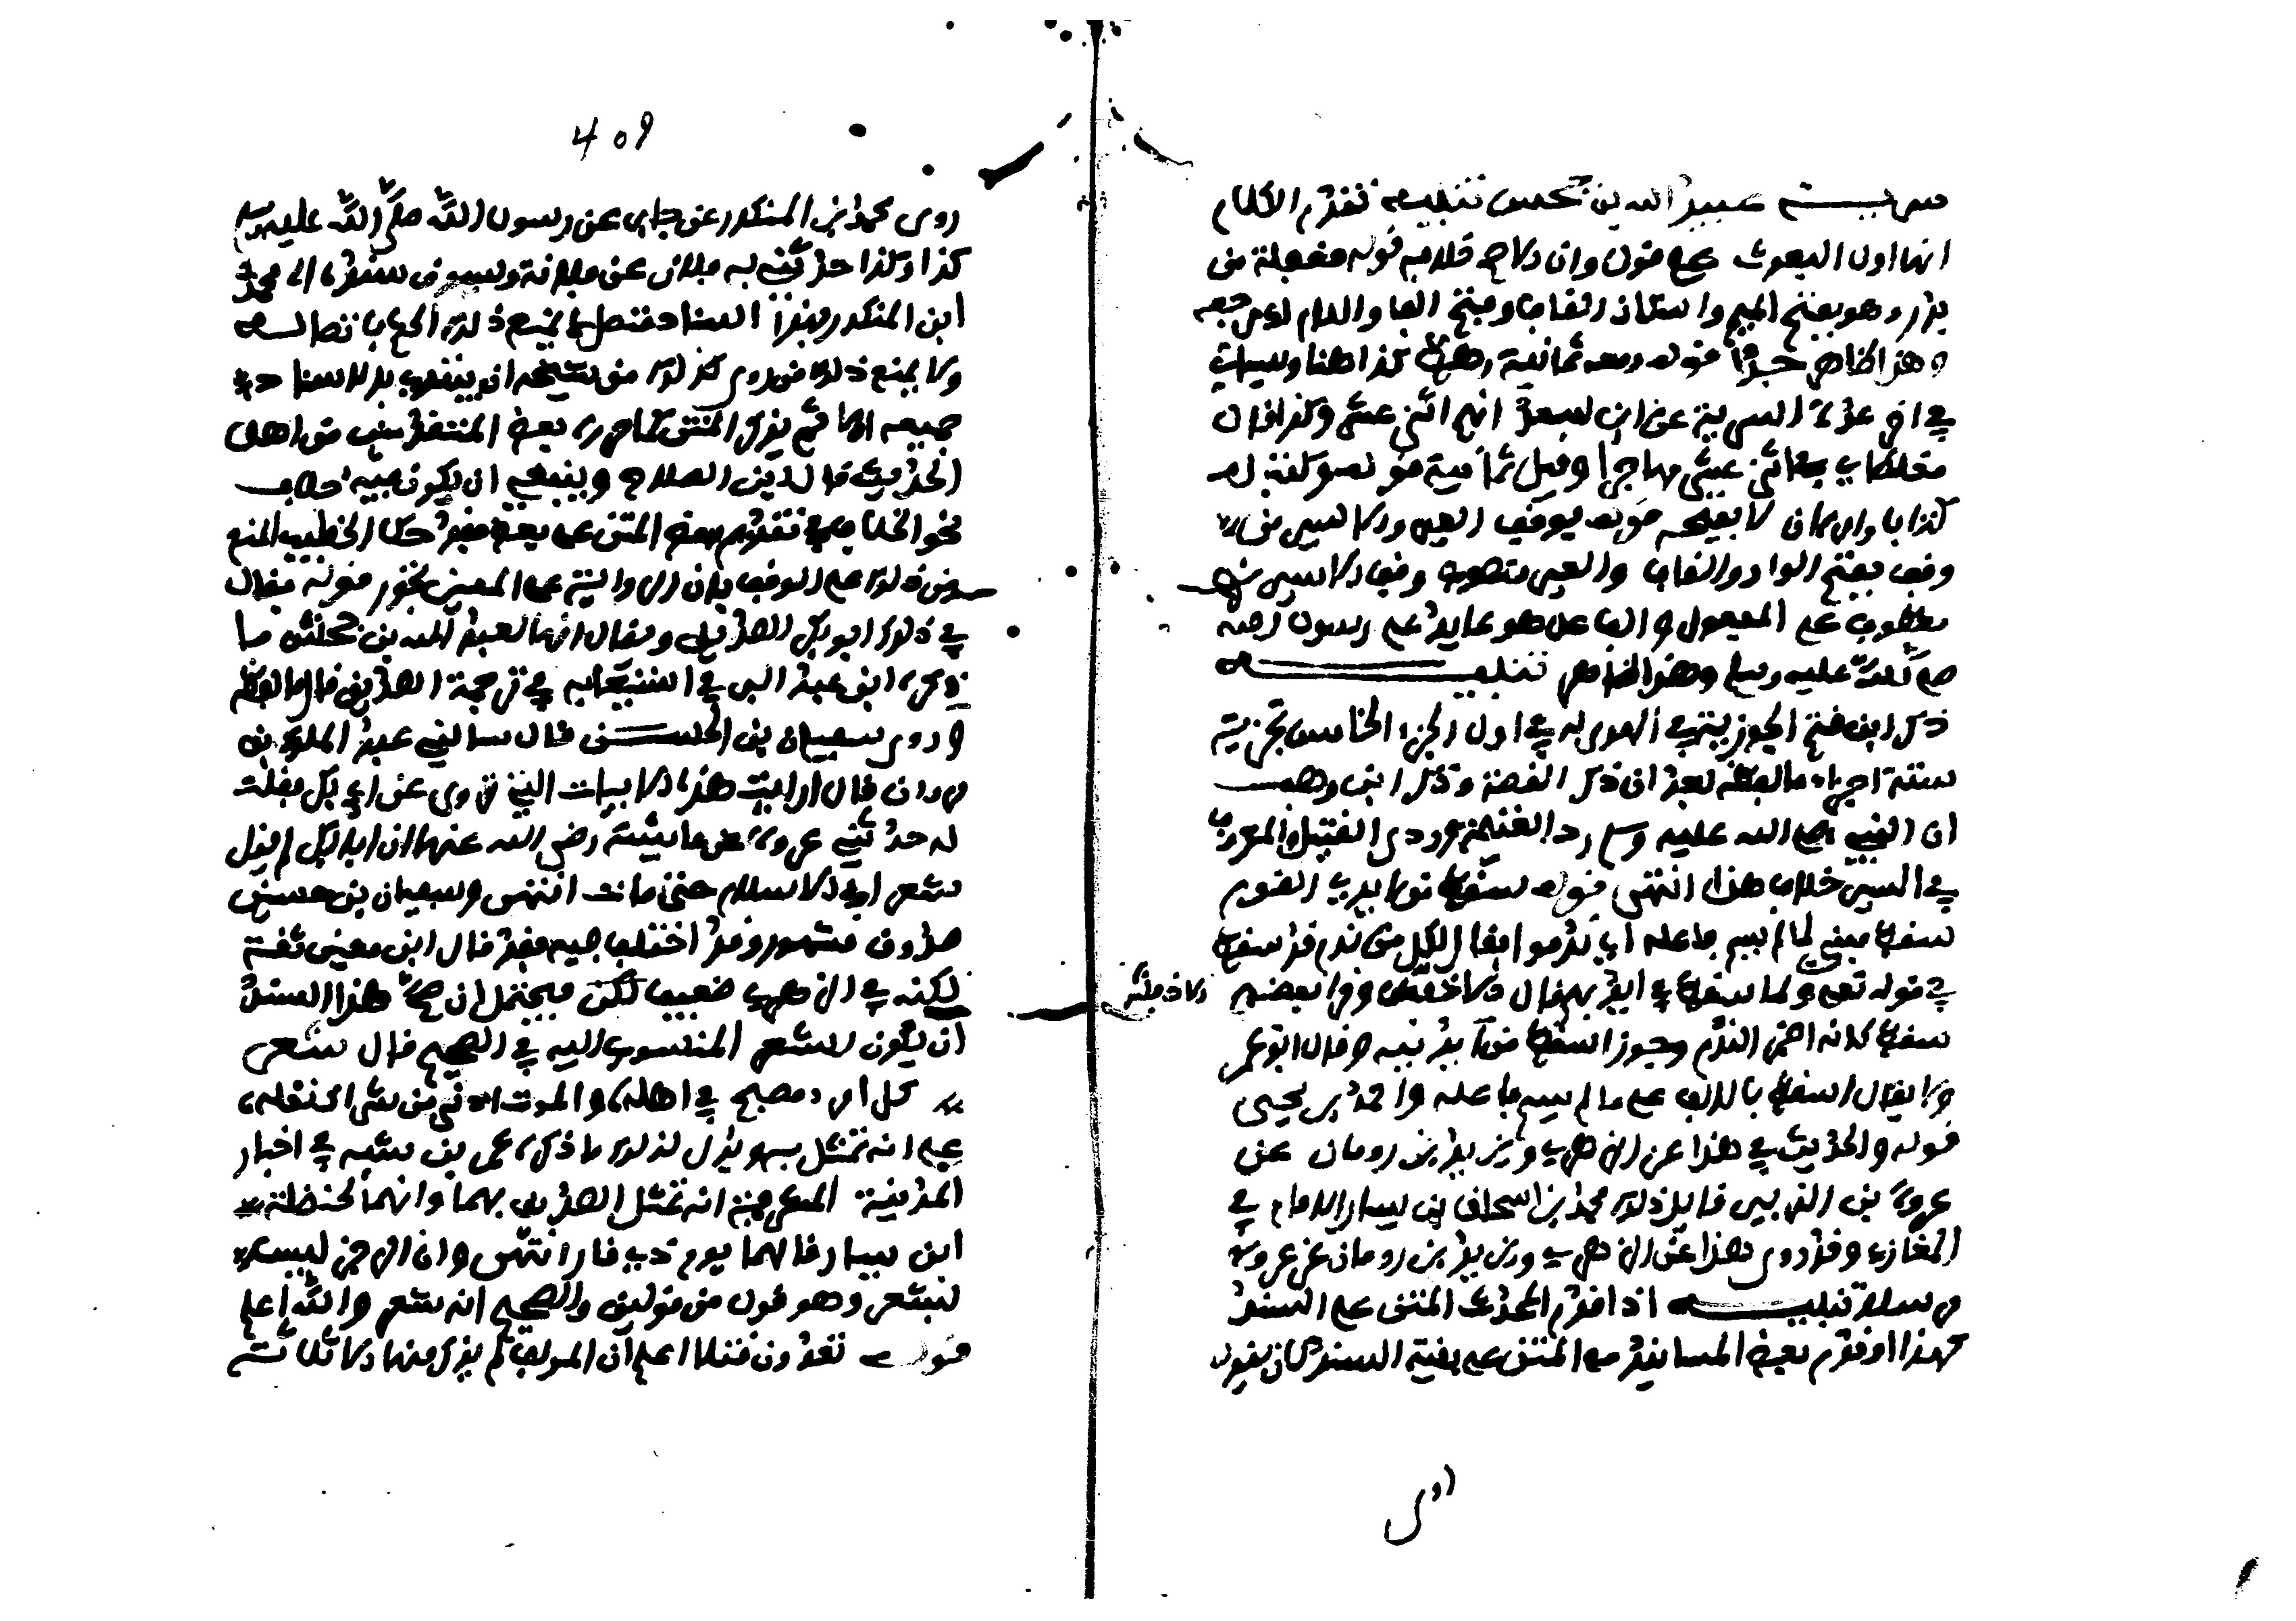 سرية عبد الله بن جحش تنبيه تقدم الكلام
انها اول البعوث على قول وان الاصح خلافه قوله مقفله من
بدر وهو بفتح الميم واسكان القاف وفتح الفا واللام اي مرجعه
وهذا ظاهر جدا قوله ومعه ثمانية رهط كذا هنا وسياتي
في اخر هذه السرية عن ابن سعد انهم اثني عشر وكذا قال
مغلطاي في اثني عشر مهاجرا وقيل ثمانية قوله وكتب له
كتابا وامره ان لا قوله يوقف العير والاسيرين
وقف بفتح الواو والقاف والعير منصوب وقف الاسيرين
معطوف على المفعول والفاعل هو عايد على رسول الله
صلى الله عليه وسلم وهذا ظاهر تنبيه
ذكر ابن قيم الجوزية في الهدي له في اول الجزء الخامس تجزية
ستة اجزاء ما لفظه بعد ان ذكر القصة وذكر ابن وهب
ان النبي صلى الله عليه وسلم رد الغنيمة وودى القتيل والمعروف
في السير خلاف هذا انتهى قوله سقط في ايدي القوم
سقط مبني لما لم يسم فاعله اي ندموا يقال لكل من ندم قد سقط
في قوله تعالى ولما سقط في ايديهم قال الاخفش وقرا بعضهم
سقط كانه اضمر الندم وجوز اسقط في يديه وقال ابو عمرو
ولا يقال اسقط بالالف على ما لم يسم فاعله واحمد بن يحيى
قوله والحديث في هذا عن الزهري ويزيد بن رومان عن
عروة بن الزبير قايل ذلك محمد بن اسحاق بن يسار الامام في
المغازي وقد روى هذا عن الزهري وعن يزيد بن رومان عن عروة
مرسلا تنبيه اذا قدم المحدث المتن على السند
كهذا او قدم بعض المسانيد مع المتن على بقية السند كان يقول
روى
409
روى محمد بن المنكدر عن جابر عن رسول الله صلى الله عليه وسلم
كذا وكذا حدثني به فلان عن فلان ويسوق سنده الى محمد
ابن المنكدر فهذا اسناد متصل لا يمنع ذلك الحكم باتصاله
ولا يمنع ذلك من روى كذلك من شيخه ان يبتدي بالاسناد
جميعه اولا ثم يذكر المتن كما جوزه بعض المتقدمين من اهل
الحديث قال ابن الصلاح وينبغي ان يكون فيه خلاف
نحو الخلاف في تقديم بعض المتن على بعض فقد حكا الخطيب المنع
من ذلك على القول بان الرواية على المعنى تجوز قوله فقال
في ذلك ابو بكر الصديق ويقال انها لعبد الله بن جحش ما
ذكره ابن عبد البر في استيعابه في ترجمة الصديق قال ما لفظه
وروى سفيان بن الحسين قال سالني عبد الملك بن
مروان فقال ارايت هذه الابيات التي تروى عن ابي بكر فقلت
له حدثني عروة عن عايشة رضي الله عنها ان ابا بكر لم يقل
شعرا في الاسلام حتى مات انتهى وسفيان بن حسين
صدوق مشهور وقد اختلف فيه فقد قال ابن معين ثقة
لكنه في الزهري ضعيف لكن فيحتمل ان صح هذا السند
ان يكون الشعر المنسوب اليه في الصحيح قال شعر
كل امرء مصبح في اهله والموت ادنى من شراك نعله
على انه تمثل به ويدل لذلك ما ذكره عمر بن شبه في اخبار
المدينة المعرجة انه تمثل الصديق بهما وانهما لحنظلة
ابن سيار قالهما يوم ذي قار انتهى وان الرجز ليس
بشعر وهو قول من قولين والصحيح انه شعر والله اعلم
قوله تعدون قتلا اعلم ان المولف لم يذكر منها الا ثلاثة